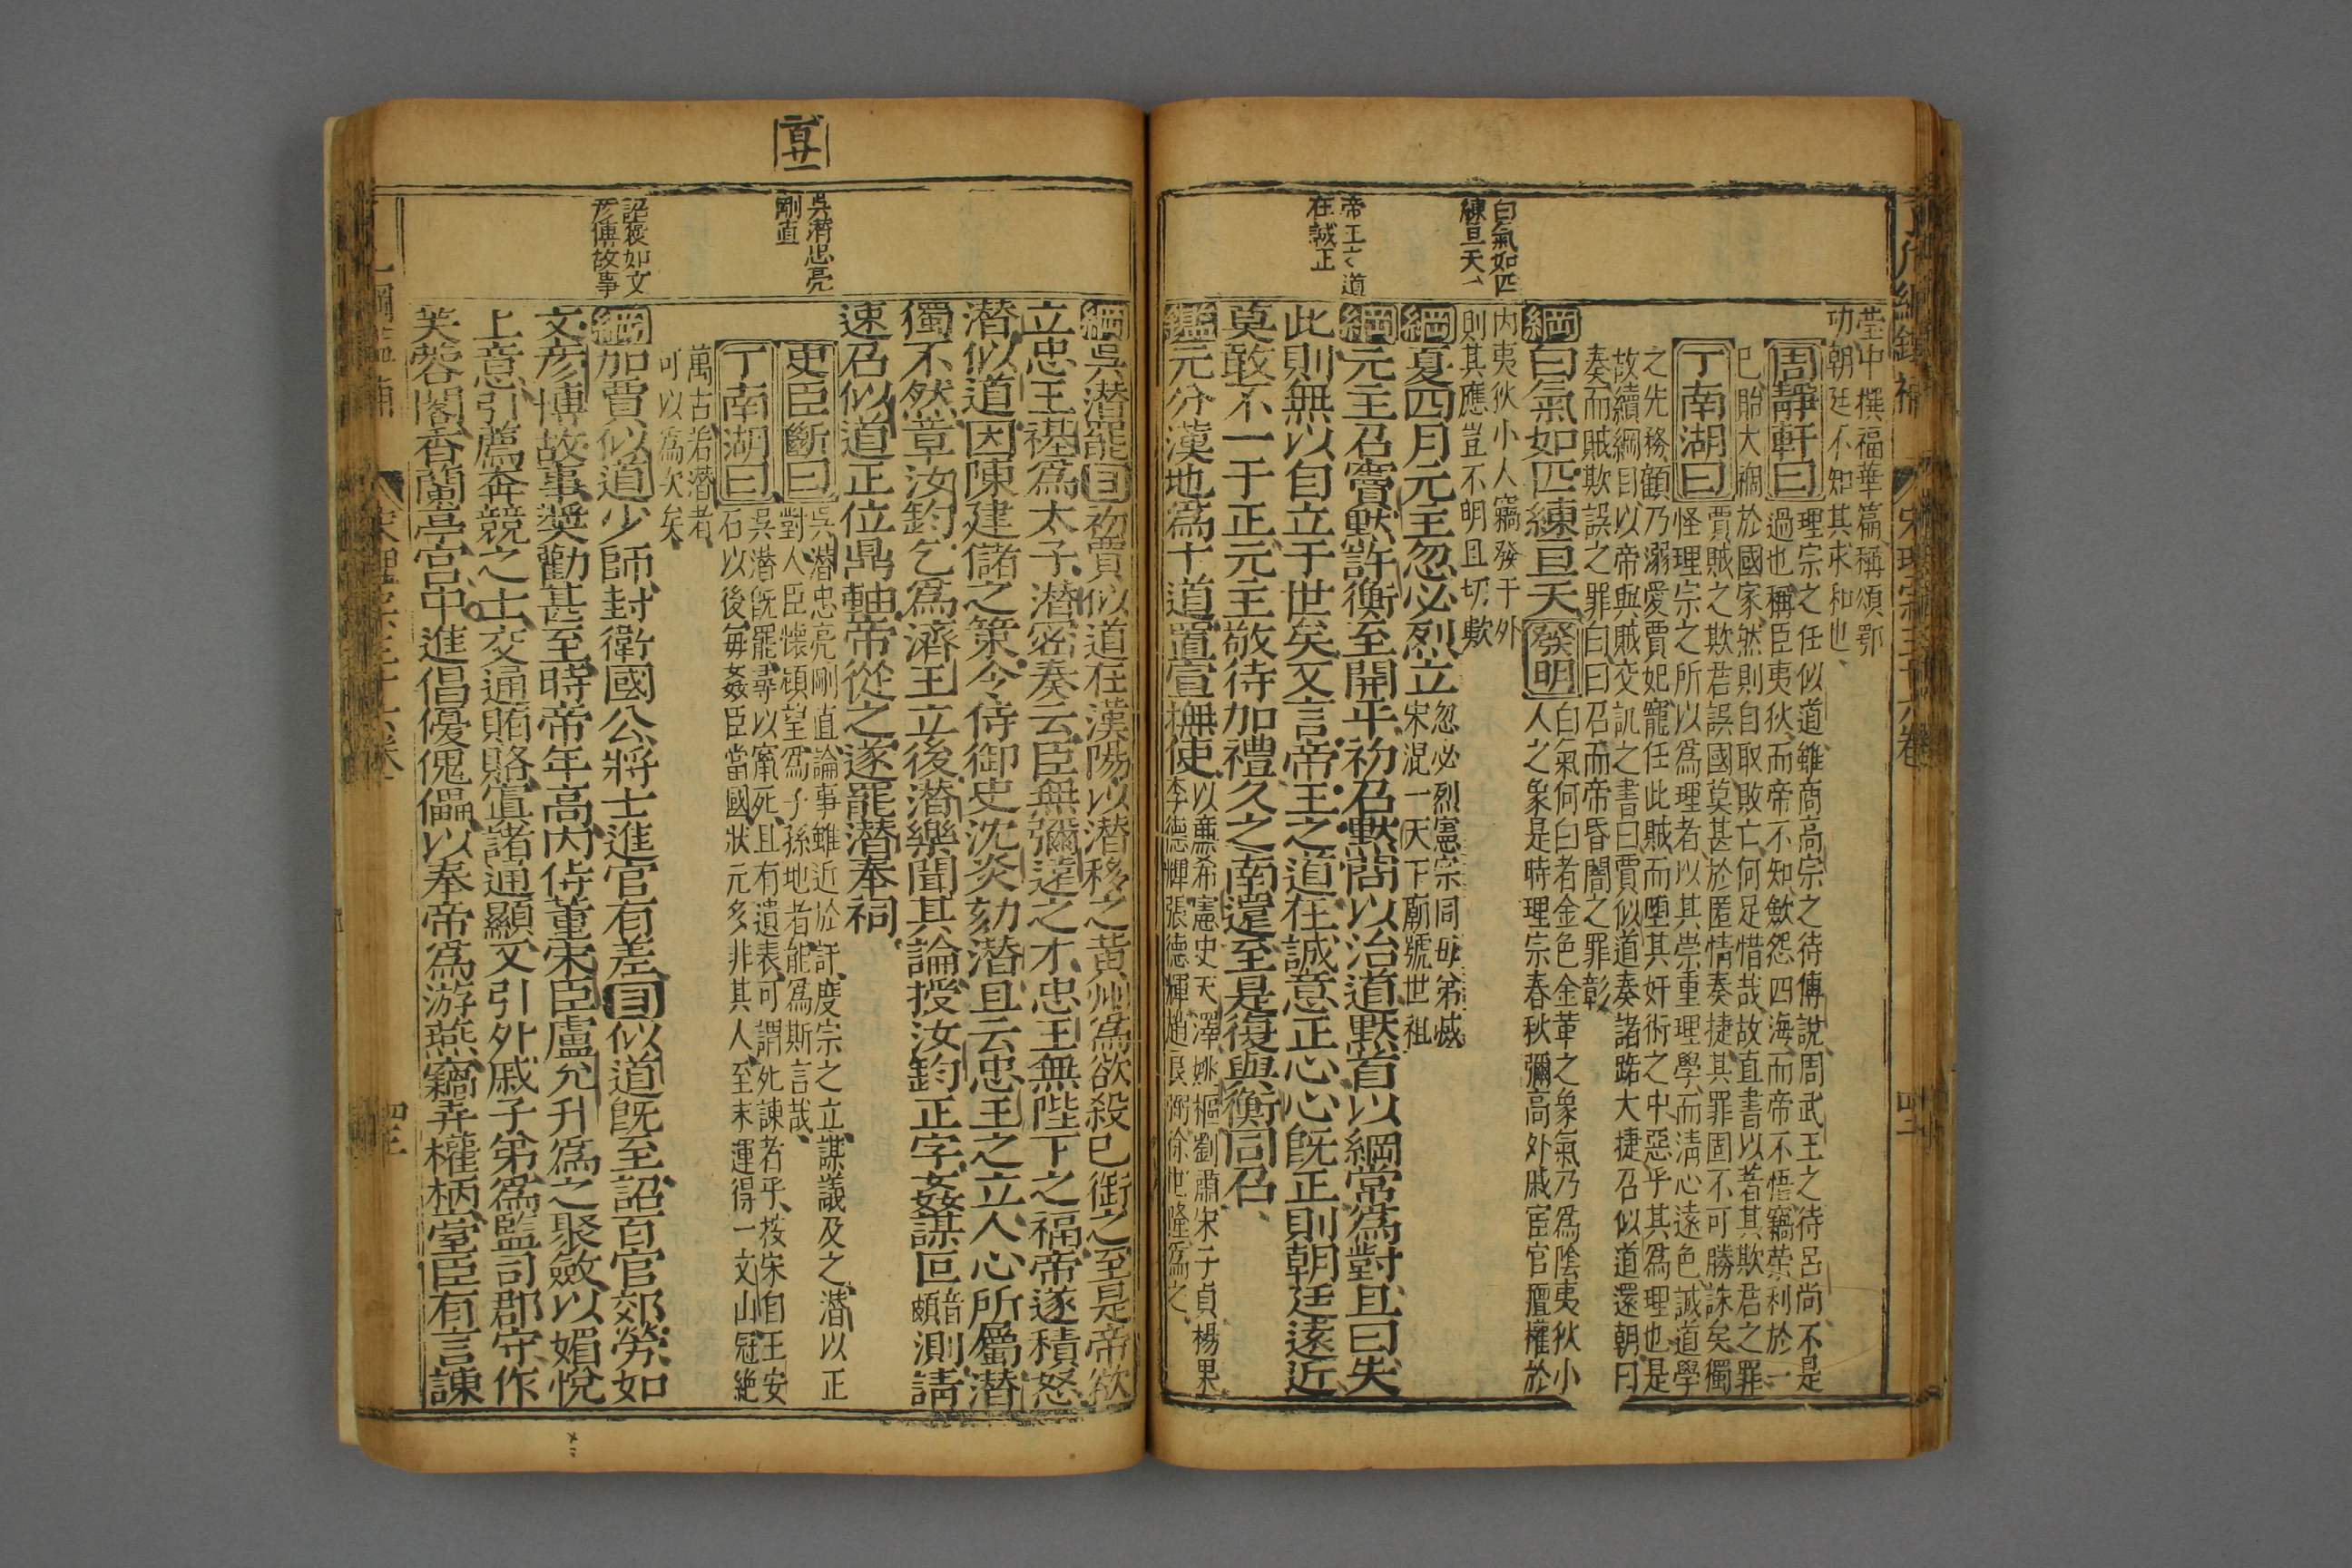 白氣如匹
練亘天
帝王之道
在誠正
瑩中撰福華篇稱頌鄂
功朝廷不知其求和也
周靜軒曰
理宗之任似道雖商高宗之待傅說周武王之待呂尚不是
過也稱臣夷狄而帝不知斂怨四海而帝不悟竊榮利於一
已貽大禍於國家然則自取敗亡何足惜哉故直書以著其欺君之罪
丁南湖曰
賈賊之欺君誤國莫甚於匿情奏捷其罪固不可勝誅矣獨
怪理宗之所以為理者以其崇重理學而清心遠色誠道學
之先務顧乃溺愛賈妃寵任此賊而墮其奸術之中惡乎其為理也是
故續綱目以帝與賊交訊之書曰賈似道奏諸路大捷召似道還朝曰
奏而賊欺誤之罪白曰召而帝昏闇之罪彰
綱白氣如匹練亘天發明
白氣何白者金色金革之象氣乃為陰夷狄小
人之象是時理宗春秋彌高外戚宦官擅權於
內夷狄小人竊發于外
則其應豈不明且切歟
綱夏四月元主忽必烈立
忽必烈憲宗同母弟滅
宋混一天下廟號世祖
綱元主召竇默許衡至開平初召默問以治道默首以綱常為對且曰失
此則無以自立于世矣又言帝王之道在誠意正心心旣正則朝廷遠近
莫敢不一于正元主敬待加禮久之南還至是復與衡同召
鑑元分漢地為十道置宣撫使
以廉希憲史天澤姚樞劉肅宋子貞楊果
李德輝張德輝趙良弼徐世隆為之
百廿一
吳潛忠亮
剛直
詔褒如文
彥博故事
綱吳潛罷目初賈似道在漢陽以潛移之黃州為欲殺已銜之至是帝欲
立忠王禥為太子潛密奏云臣無彌遠之才忠王無陛下之福帝遂積怒
潛似道因陳建儲之策令侍御史沈炎劾潛且云忠王之立人心所屬潛
獨不然章汝鈞乞為濟王立後潛樂聞其論授汝鈞正字姦謀叵音頗測請
速召似道正位鼎軸帝從之遂罷潛奉祠
史臣斷曰
吳潛忠亮剛直論事雖近於訐度宗之立謀議及之潛以正
對人臣懷顧望為子孫地者能為斯言哉
丁南湖曰
吳潛旣罷尋以竄死且有遺表可謂死諫者乎按宋自王安
石以後每姦臣當國狀元多非其人至末運得一文山冠絕
萬古若潛者
可以為次矣
綱加賈似道少師封衛國公將士進官有差目似道旣至詔百官郊勞如
文彥博故事奬勸甚至時帝年高內侍董宋臣盧允升為之聚斂以媚悅
上意引薦奔競之士交通賄賂寘諸通顯又引外戚子弟為監司郡守作
芙蓉閣香蘭亭宮中進倡優傀儡以奉帝為游燕竊弄權柄臺臣有言諫